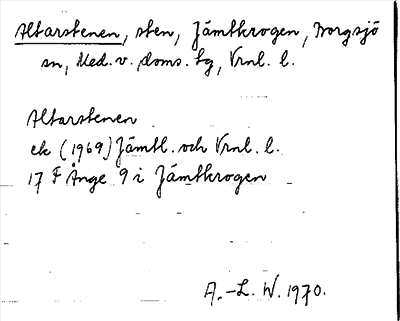 Altarstenen, sten, Jämtkrogen, Borgsjö
sn, Med. v. doms. tg, Vrnl. l.
Altarstenen
ek (1969) Jämtl. och Vrnl. l.
17 F Ånge 9 i Jämtkrogen
A.-L. W. 1970.